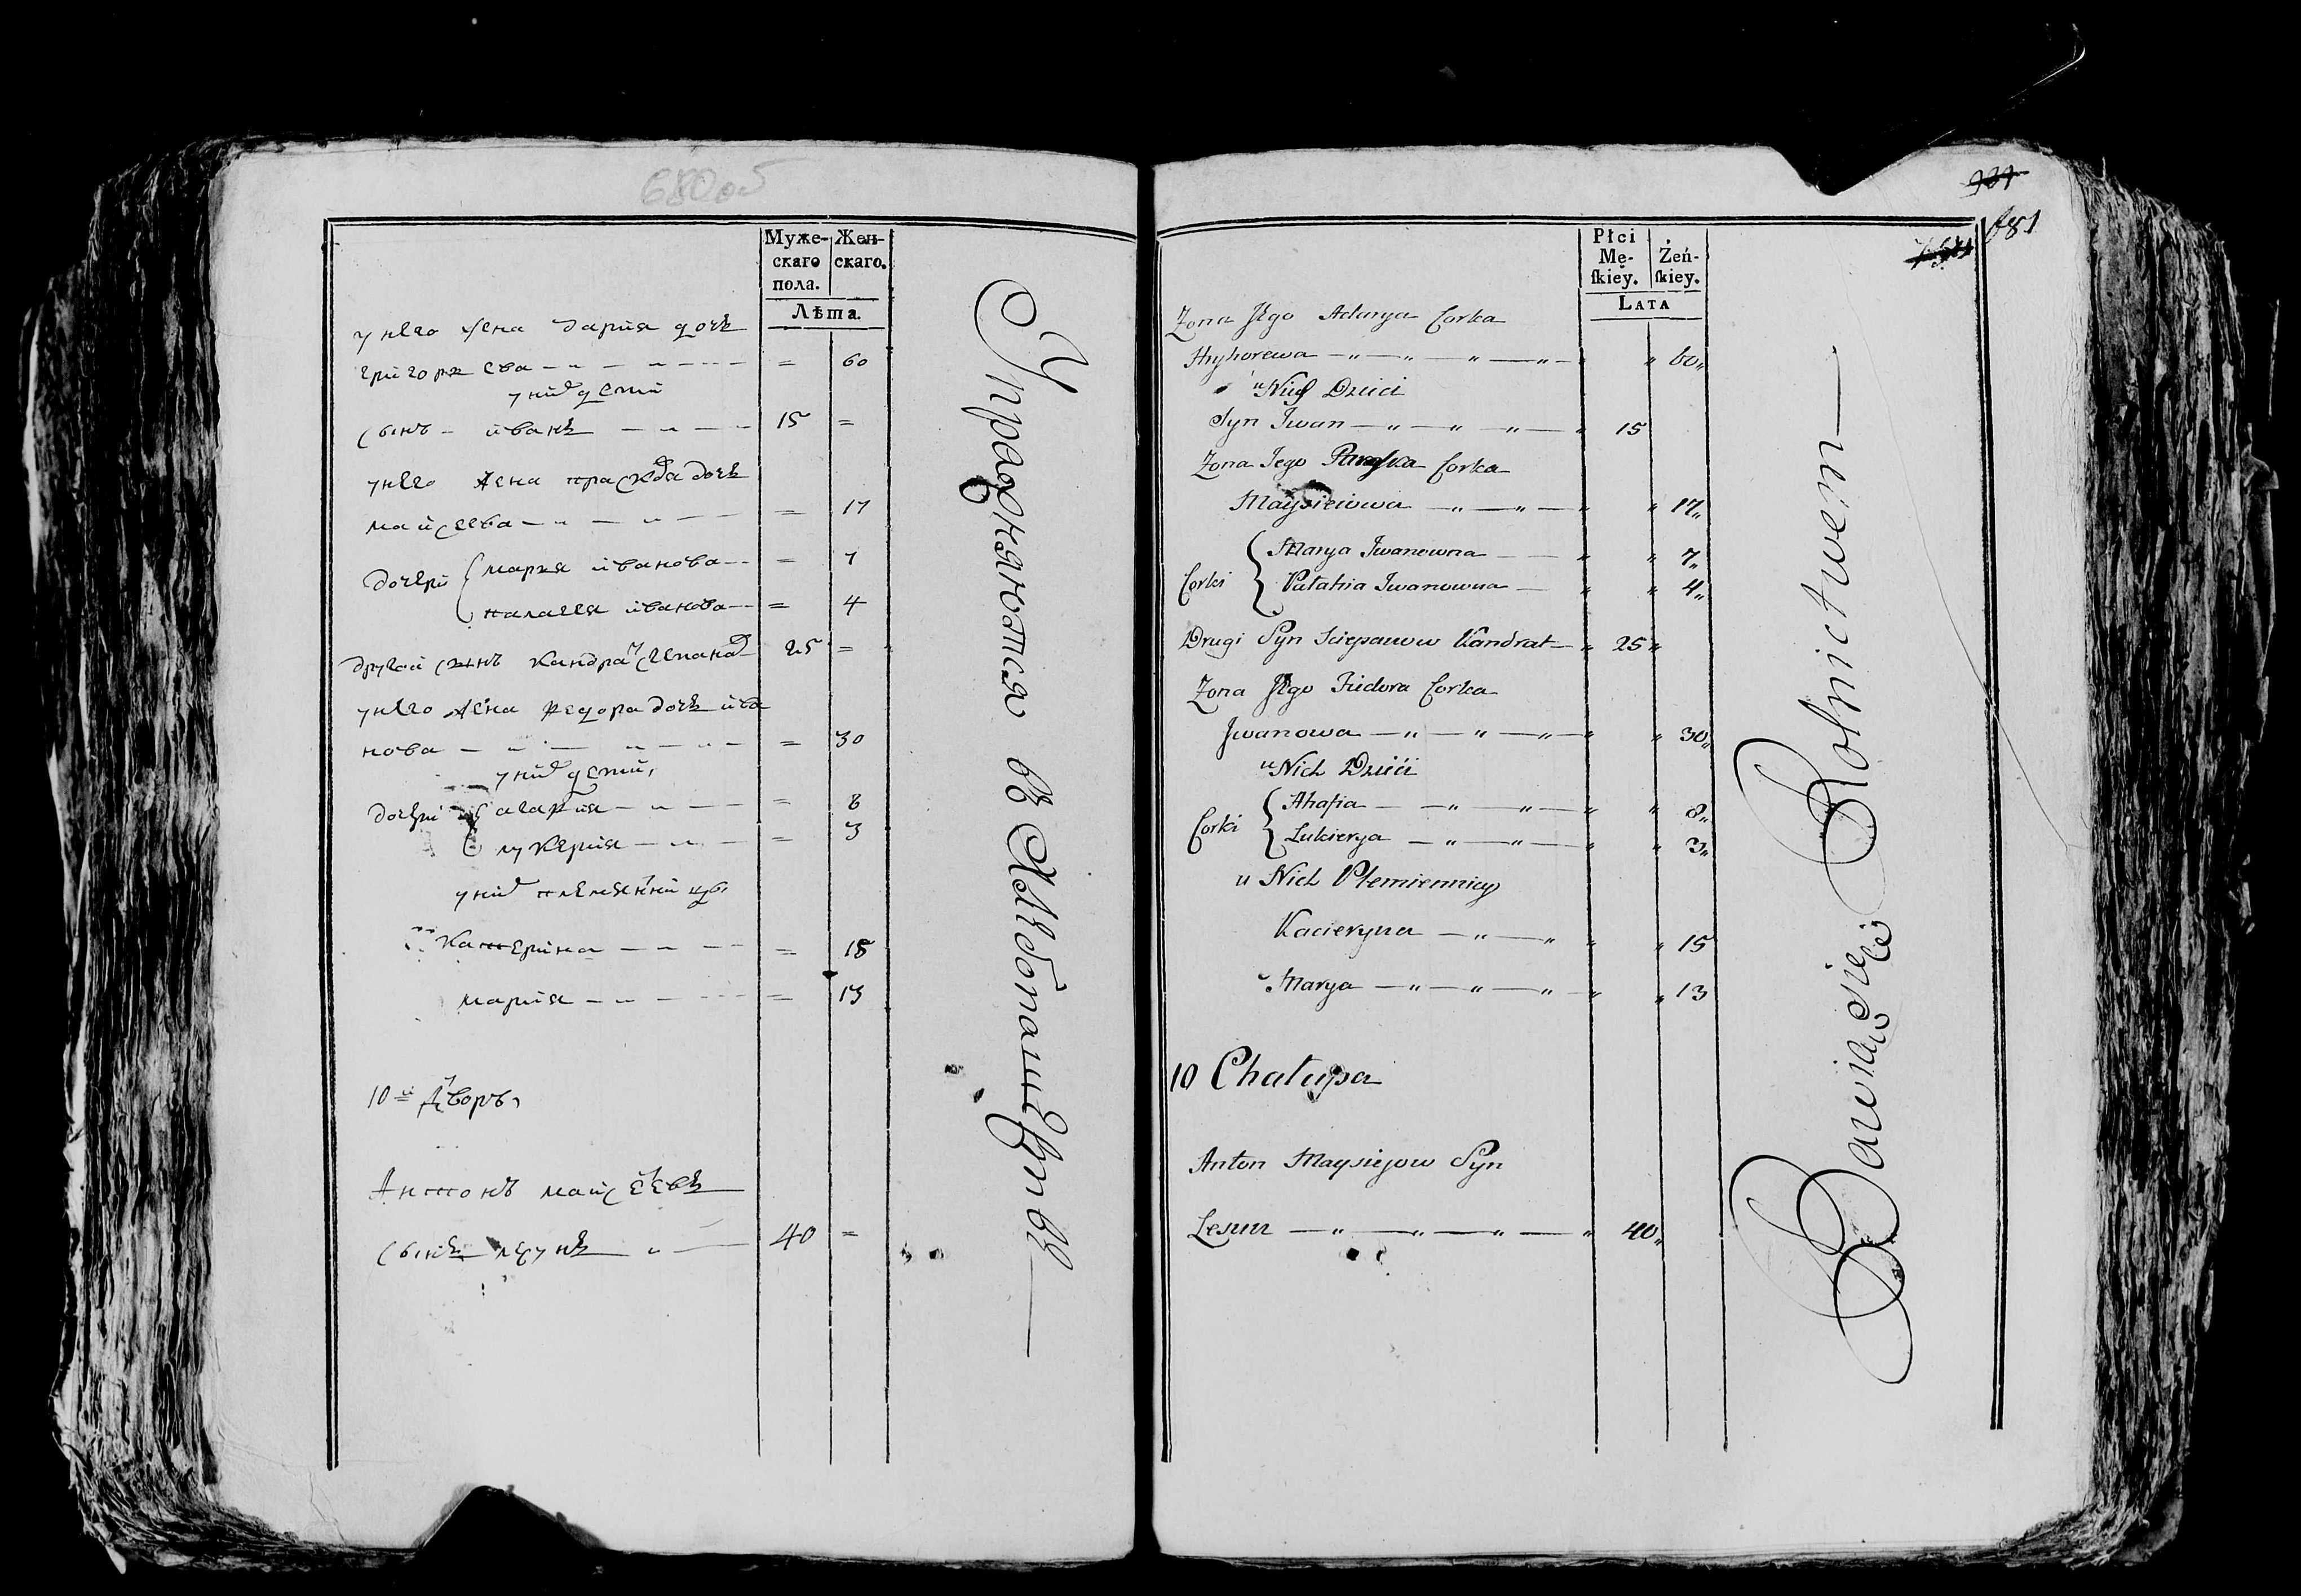 680 об
Муже-
скаго
пола.
Жен-
скаго.
Лѣта.
у него жена дария дочь
григорьева 60
у них дети
сынъ иванъ 15
у него жена праскѳдя дочь
майсеева 17
дочери
мария иванова 7
палагея иванова 4
другой сынъ кандрат степанов 25
у него жена федора дочь ива
нова 30
у них дети
дочери
агафия 8
лукерия 3
у них племянницы
Катерина 15
мария 13
10й дворъ
Антонъ майсеевъ
сынъ лесунъ 40
Упражняются въ Хлѣбопашествѣ
681
Płci
Mę-
ſkiey.
Żeń-
ſkiey.
LATA
Zona Jego Adarya Corka
Hryhorewa 60
u Nich Dzieci
Syn Iwan 15
Zona Jego Praska Corka
Maysieiowa 17
Corki
Marya Iwanowna 7
Pałahia Iwanowna 4
Drugi Syn Sciepanow Kandrat 25
Zona Jego Fiedora Corka
Jwanowa 30
u Nich Dzieći
Corki
Ahafia 8
Lukierya 3
u Nich Plemiennicy
Kacieryna 15
Marya 13
10 Chałupa
Anton Maysiejow Syn
Lesun 40
Bawią się Rolnictwem